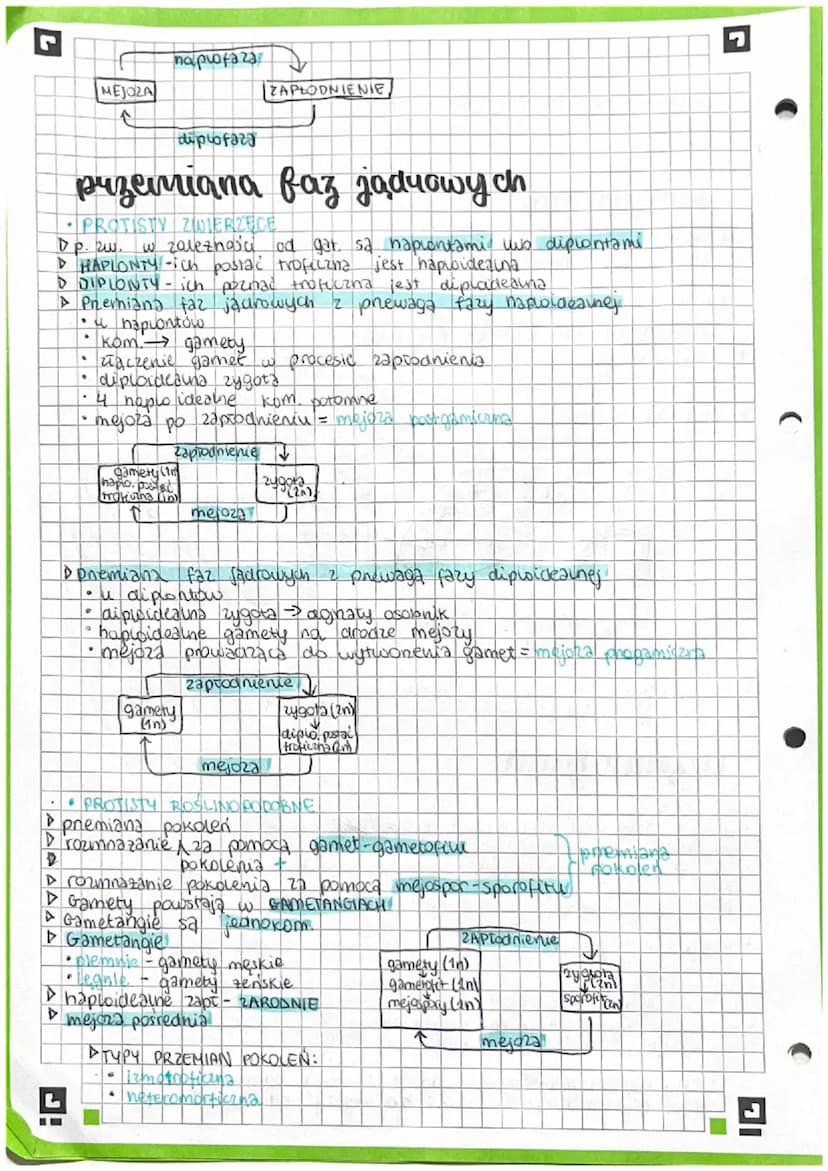 haplofaza
MEJOZA
ZAPŁODNIENIE
diplofaza
przemiana faz jądrowych
• PROTISTY ZWIERZĘCE
▷ p. zw. w zależności od gat. są haplontami lub diplontami
▷ HAPLONTY - ich postać troficzna jest haploidealna
▷ DIPLONTY - ich postać troficzna jest diploidealna
▷ Przemiana faz jądrowych z przewagą fazy haploidealnej
• u haplontów
• kom. → gamety
• złączenie gamet w procesie zapłodnienia
• diploidealna zygota
• 4 haploidealne kom. potomne
• mejoza po zapłodnieniu = mejoza postgamiczna
zapłodnienie
gamety (1n)
haplo. postać
troficzna (1n)
zygota
(2n)
mejoza
▷ przemiana faz jądrowych z przewagą fazy diploidealnej
• u diplontów
• diploidealna zygota → dojrzały osobnik
• haploidealne gamety na drodze mejozy
• mejoza prowadząca do wytworzenia gamet = mejoza pregamiczna
zapłodnienie
gamety
(1n)
zygota (2n)
↓
diplo. postać
troficzna (2n)
mejoza
• PROTISTY ROŚLINOPODOBNE
▷ przemiana pokoleń
▷ rozmnażanie 1 za pomocą gamet-gametofitu
▷ pokolenia +
▷ rozmnażanie pokolenia za pomocą mejospor-sporofitu
przemiana
pokoleń
▷ Gamety powstają w GAMETANGIACH
▷ Gametangie są jednokom.
▷ Gametangie
• plemnie - gamety męskie
• lęgnie - gamety żeńskie
▷ haploidealne zapł - ZARODNIE
▷ mejoza pośrednia
ZAPŁODNIENIE
gamety (1n)
gametofit (1n)
mejospory (1n)
zygota
↓ (2n)
sporofit (2n)
mejoza
▷ TYPY PRZEMIAN POKOLEŃ:
• izmotroficzna
• heteromorficzna